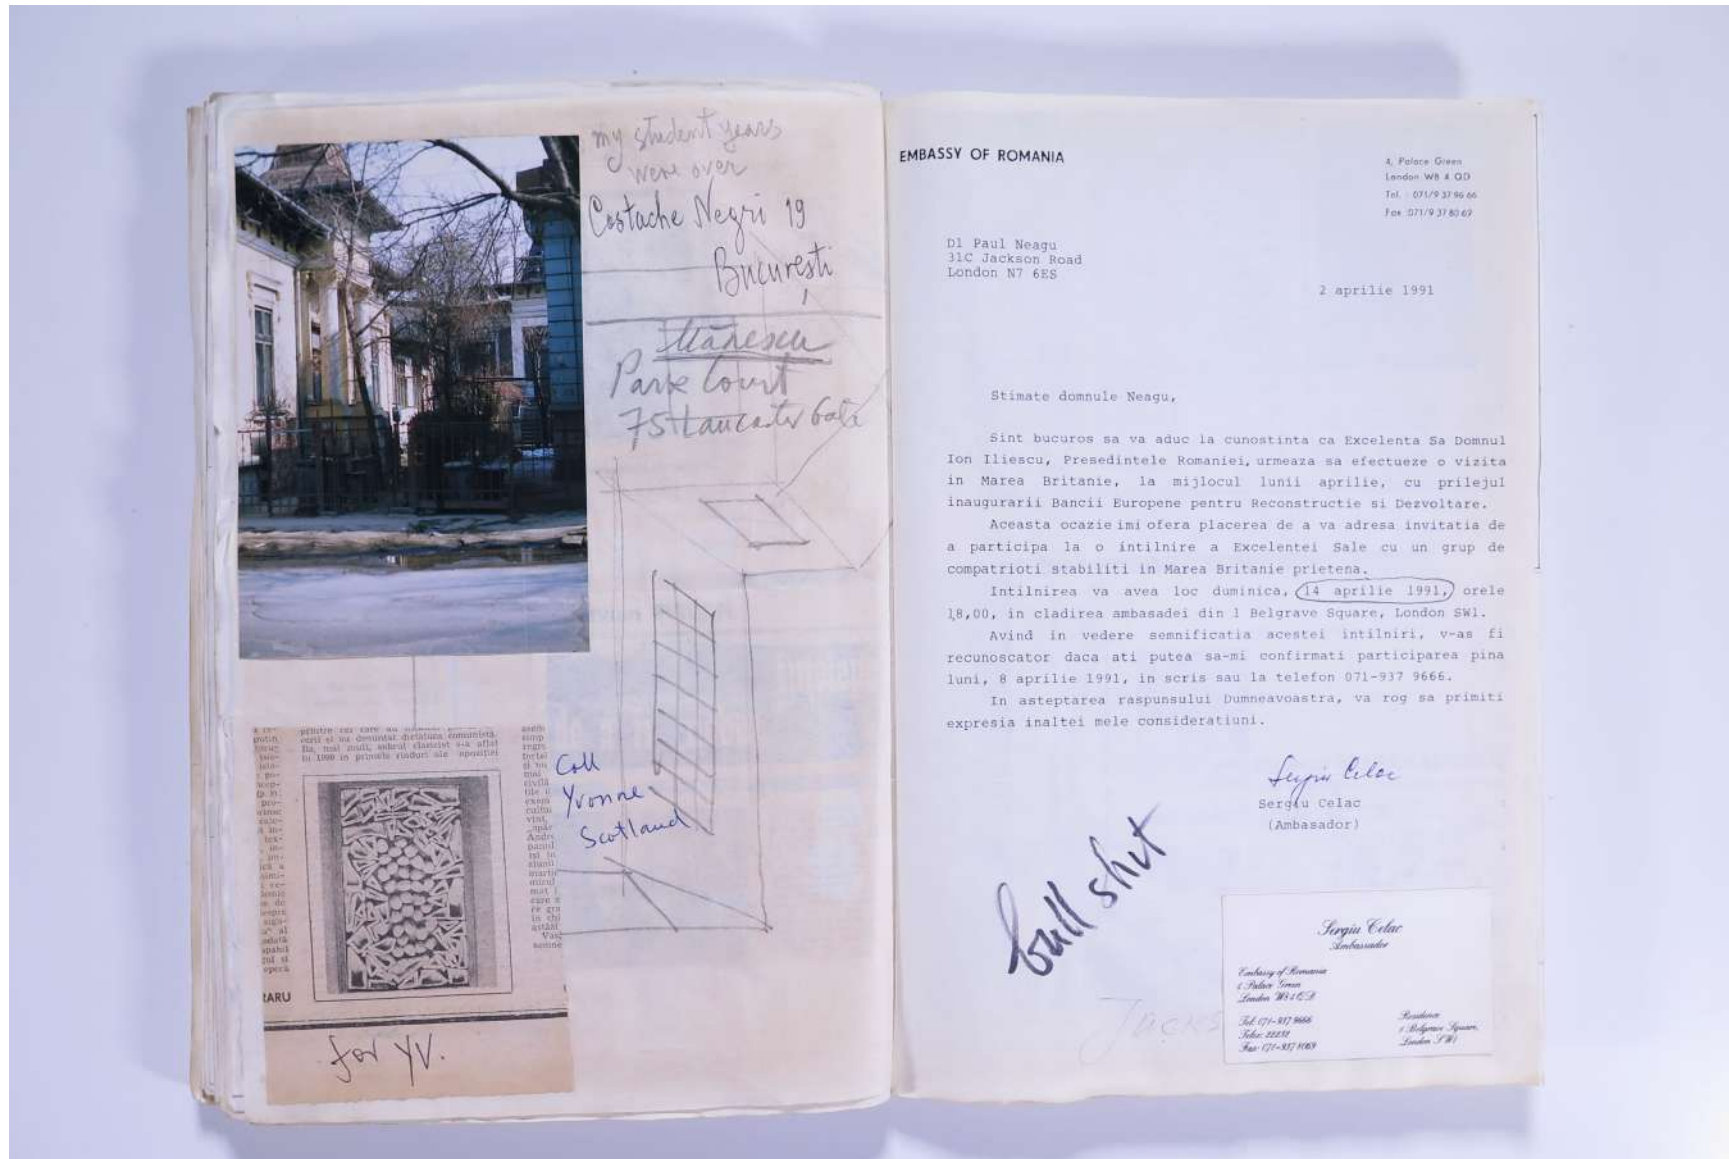 my student years
were over
Costache Negri 19
Bucureşti
Park Court
75 Lancaster Gate
printre cei care au
cerii si au denuntat dictatura comunistă.
în 1990 în primele rînduri ale opoziţiei
RARU
for YV.
Call
Yvonne
Scotland
EMBASSY OF ROMANIA
4, Palace Green
London W8 4 QD
Tel. : 071/9 37 96 66
Fax 071/9 37 80 69
Dl Paul Neagu
31C Jackson Road
London N7 6ES
2 aprilie 1991
Stimate domnule Neagu,
Sint bucuros sa va aduc la cunostinta ca Excelenta Sa Domnul
Ion Iliescu, Presedintele Romaniei, urmeaza sa efectueze o vizita
in Marea Britanie, la mijlocul lunii aprilie, cu prilejul
inaugurarii Bancii Europene pentru Reconstructie si Dezvoltare.
Aceasta ocazie imi ofera placerea de a va adresa invitatia de
a participa la o intilnire a Excelentei Sale cu un grup de
compatrioti stabiliti in Marea Britanie prietena.
Intilnirea va avea loc duminica, 14 aprilie 1991, orele
18,00, in cladirea ambasadei din 1 Belgrave Square, London SW1.
Avind in vedere semnificatia acestei intilniri, v-as fi
recunoscator daca ati putea sa-mi confirmati participarea pina
luni, 8 aprilie 1991, in scris sau la telefon 071-937 9666.
In asteptarea raspunsului Dumneavoastra, va rog sa primiti
expresia inaltei mele consideratiuni.
Sergiu Celac
Sergiu Celac
(Ambasador)
bull shit
Jacks
Sergiu Celac
Ambassador
Embassy of Romania
4 Palace Green
London W8 4QD
Tel: 071-937 9666
Telex: 22232
Fax: 071-937 8069
Residence
1 Belgrave Square,
London SW1